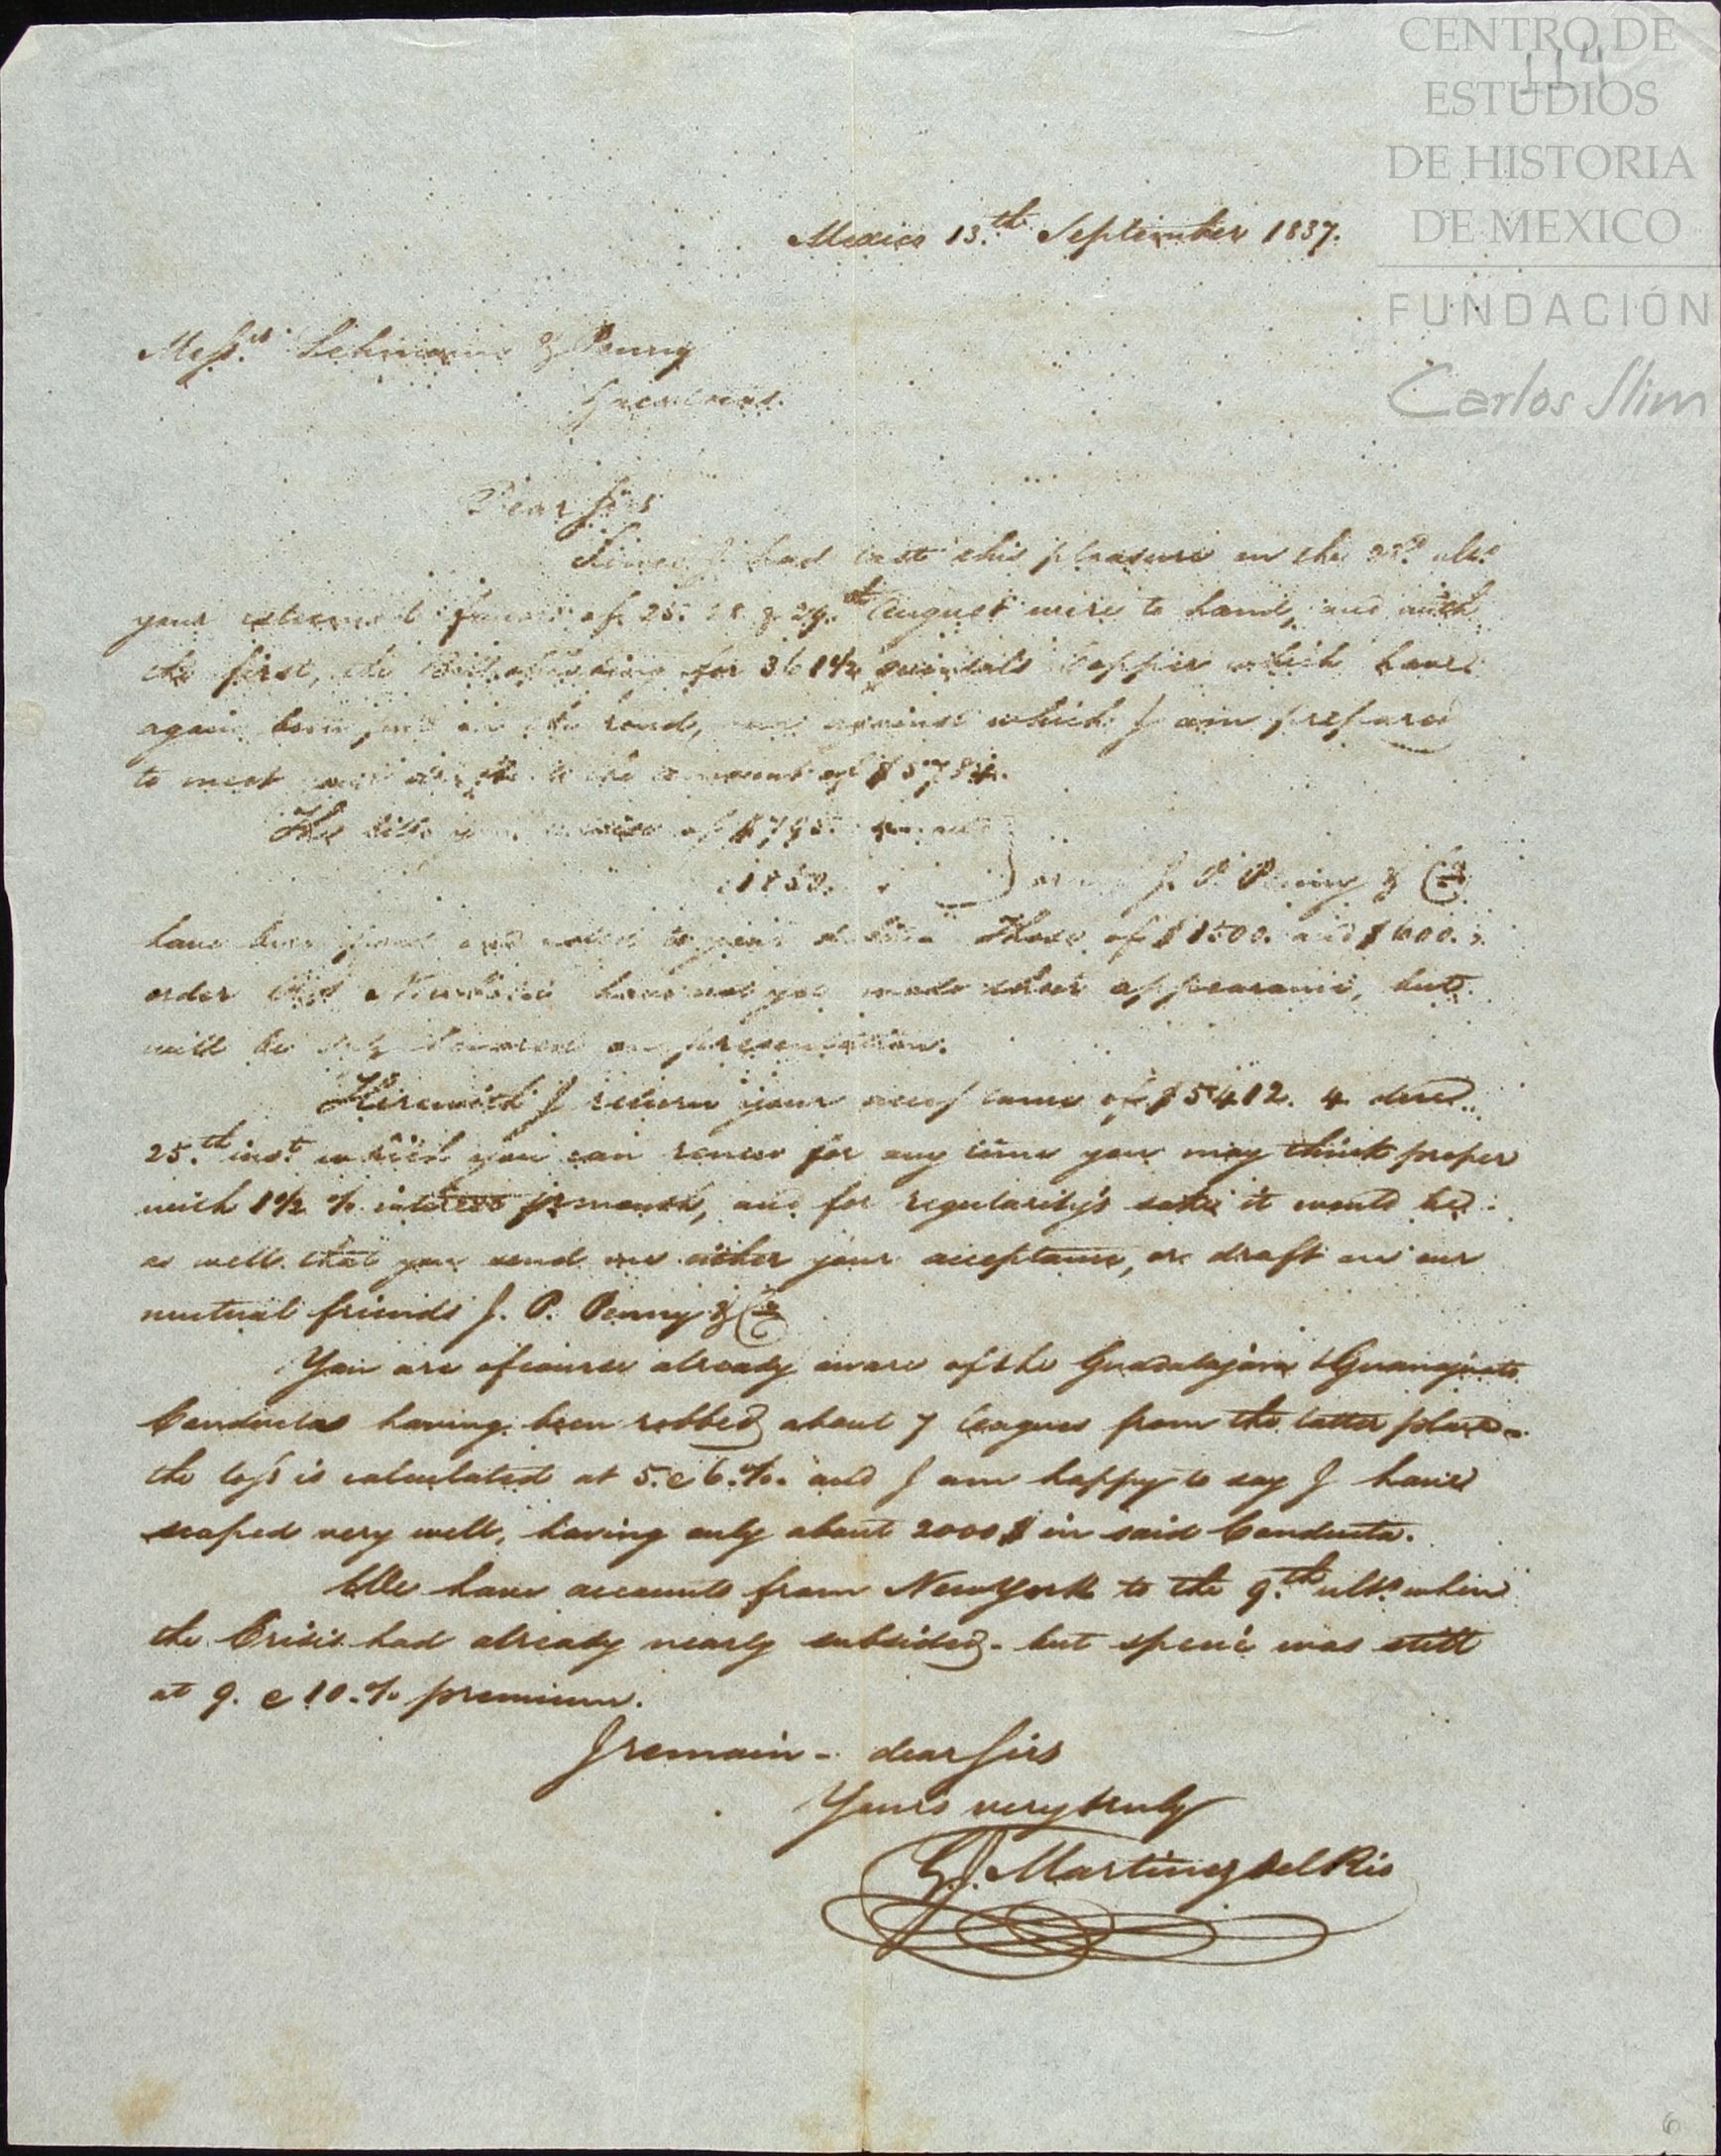 CENTRO DE
ESTUDIOS
DE HISTORIA
DE MEXICO
FUNDACIÓN
Carlos Slim
114
Mexico 13.th September 1837.
Mess.rs & Penny
Dear Sirs
Since I had last this pleasure on the ult.o
your esteemed of 25. 28 & 29.th August were to hand, and with
the first, the for 361½ quintals Copper which have
again been on the road, and against which I am prepared
to meet your to the amount of $5784.
The bills you advise of $795.
1850. J. P. Penny & Co
have been paid and noted to your Those of $1500. and $600.
order have not yet made their appearance, but
will be duly honored on presentation.
Herewith I return your acceptance of $5412. 4 due
25.th inst. which you can renew for any time you may think proper
with 1½ % interest pr month, and for regularity's sake it would be
as well that you send me either your acceptance, or draft on our
mutual friends J. P. Penny & Co
You are ofcourse already aware of the Guadalajara & Guanajuato
Conductas having been robbed about 7 leagues from the latter place-
the loss is calculated at 5. @ 6.%. and I am happy to say I have
scaped very well, having only about 2000$ in said Conducta.
We have accounts from New York to the 9.th ult.o when
the Crisis had already nearly subsided- but specie was still
at 9. @ 10.% premium.
I remain - dear Sirs
Yours very truly
G. Martinez del Rio
6